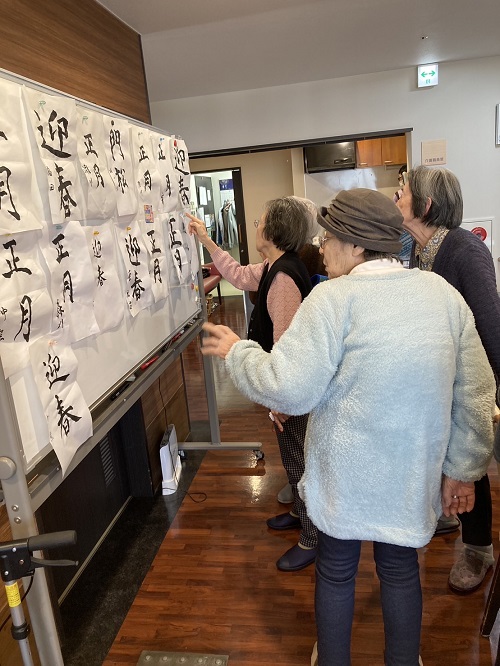 正月
迎春
正月
門松
正月
正月
迎春
正月
正月
迎春
迎春
正月
正月
迎春